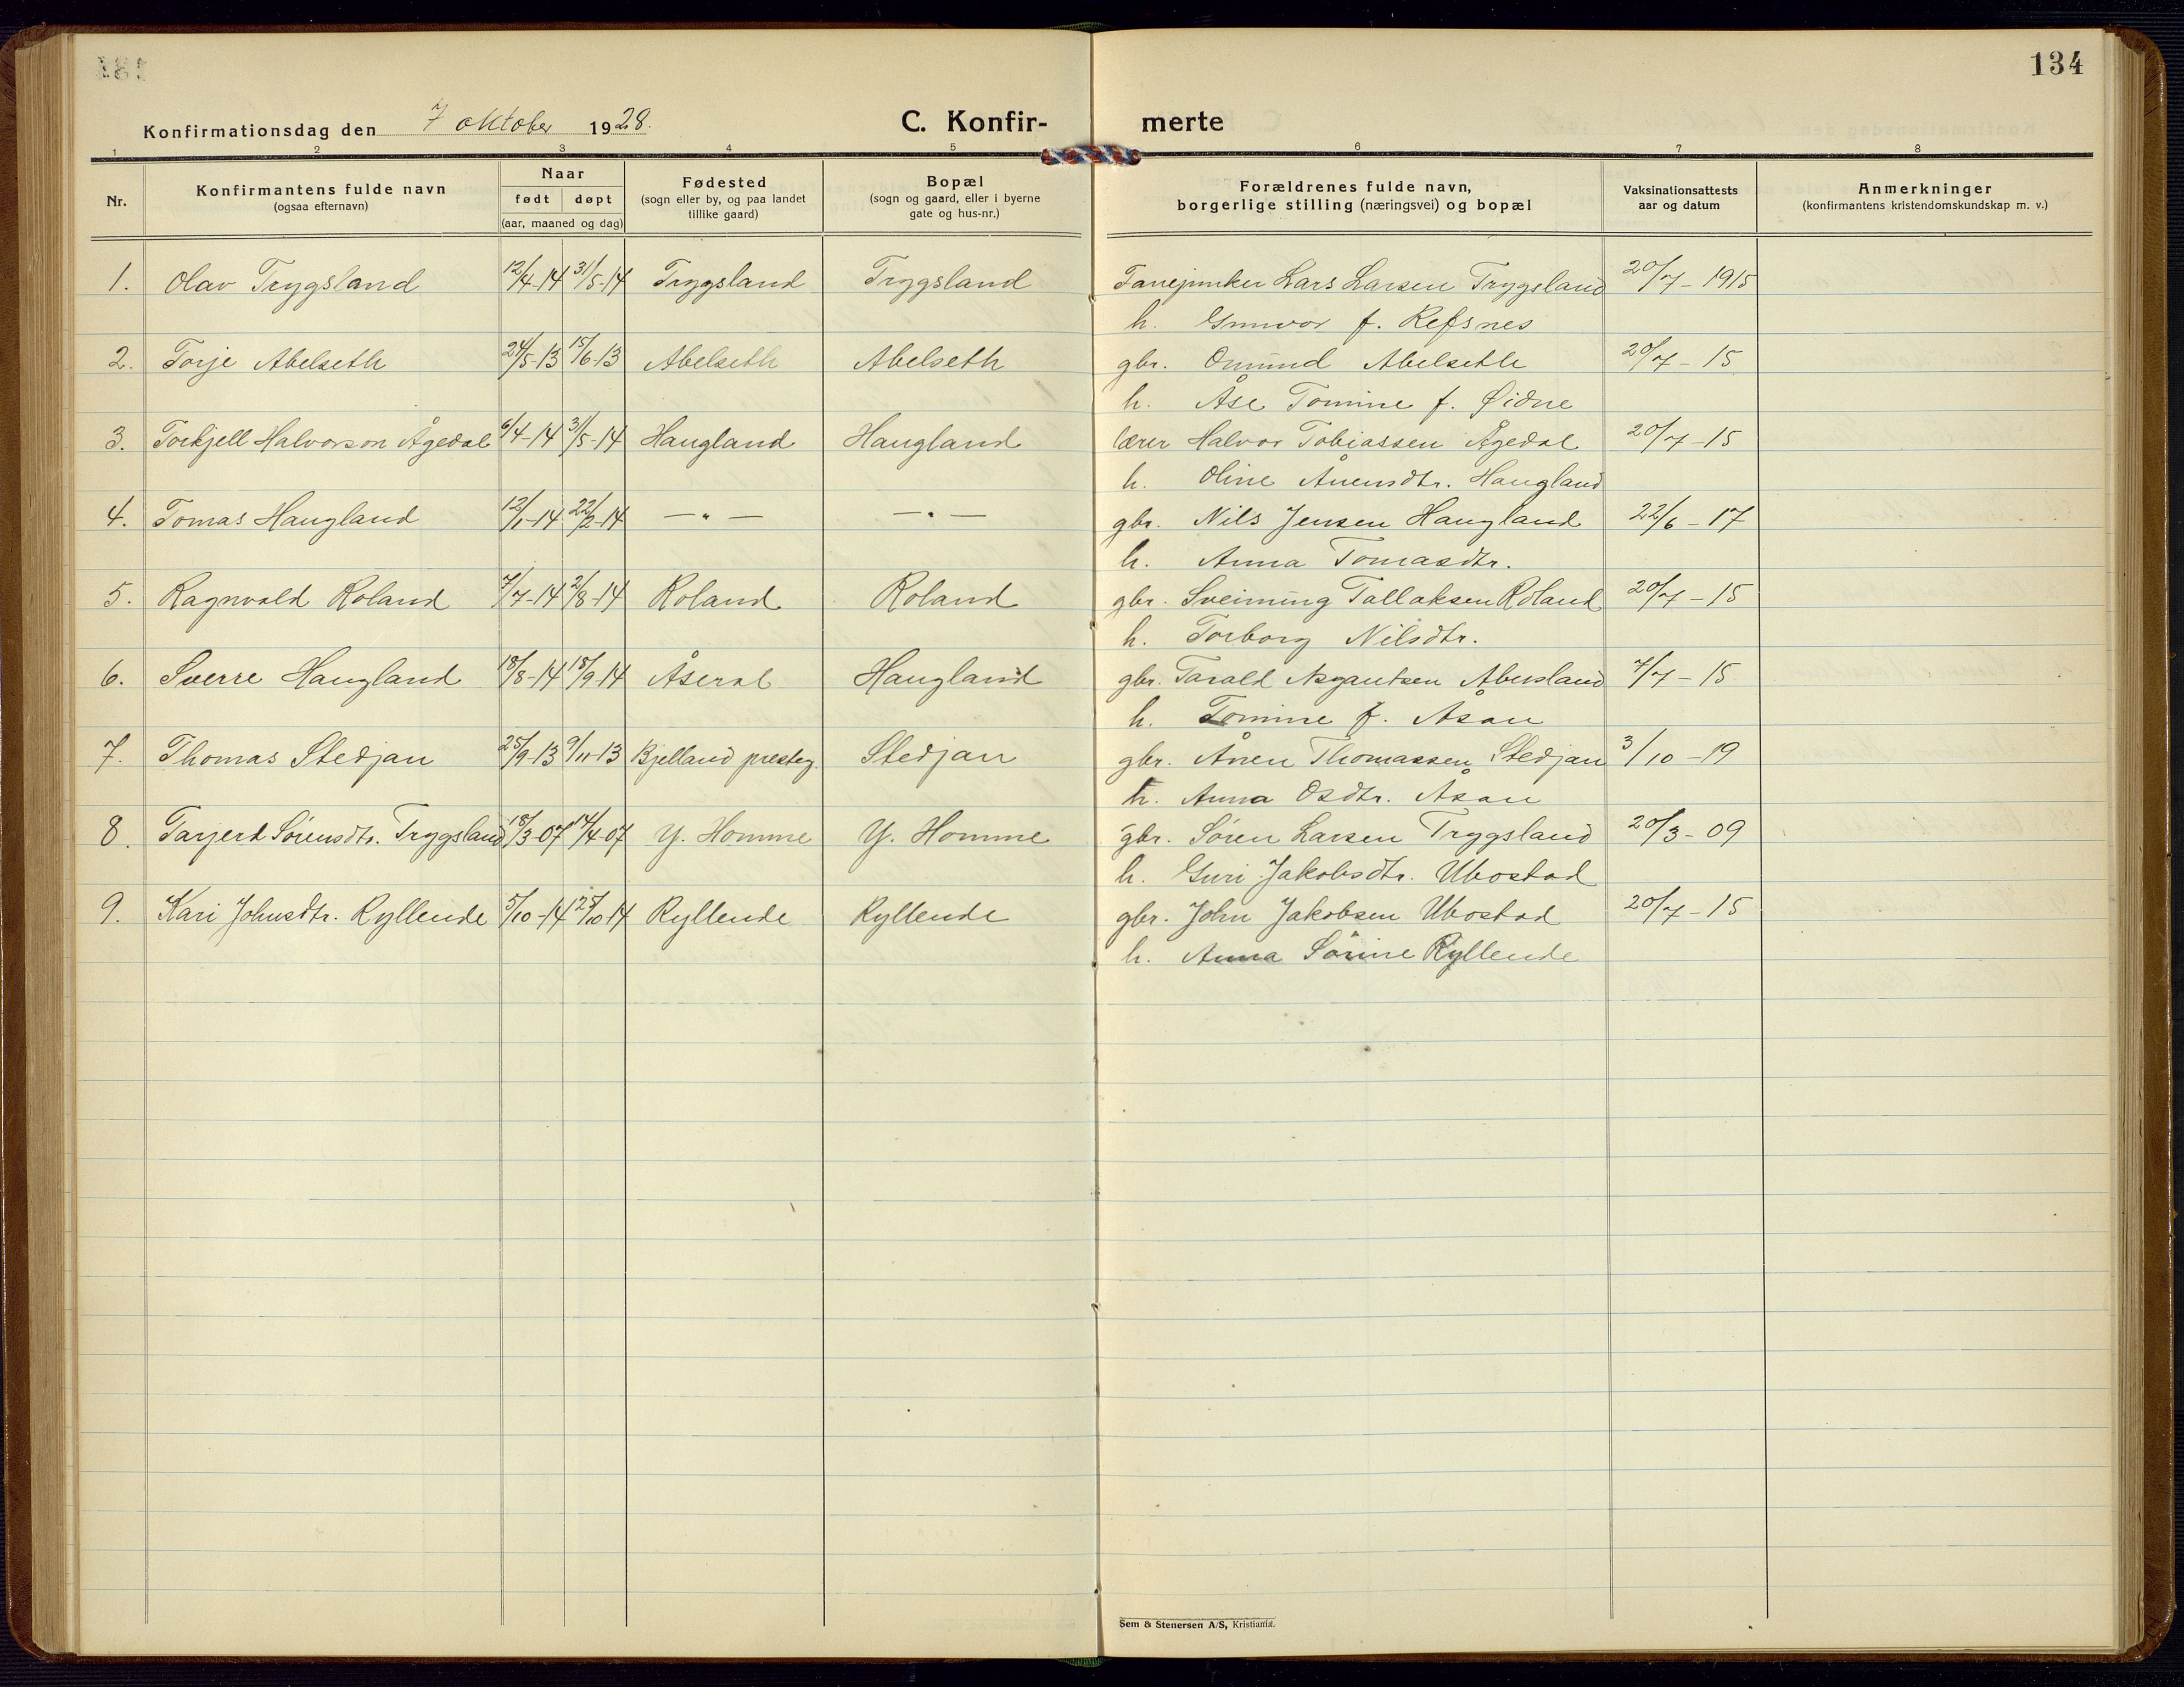 134
Konfirmationsdag den 7 oktober 1928.
C. Konfir- merte
1 2 3 4 5 6 7 8
Nr.
Konfirmantens fulde navn
(ogsaa efternavn)
Naar
født døpt
(aar, maaned og dag)
Fødested
(sogn eller by, og paa landet
tillike gaard)
Bopæl
(sogn og gaard, eller i byerne
gate og hus-nr.)
Forældrenes fulde navn,
borgerlige stilling (næringsvei) og bopæl
Vaksinationsattests
aar og datum
Anmerkninger
(konfirmantens kristendomskundskap m. v.)
1. Olav Trygsland 12/4-14 31/5-14 Trygsland Trygsland Lars Larsen Trygsland 20/7-1915
h. Gunvor f. Refsnes
2. Torje Abelseth 24/5-13 15/6-13 Abelseth Abelseth gbr. Omund Abelseth 20/7-15
h. Åse Tomine f. Øidne
3. Torkjell Halvorson Ågedal 6/4-14 31/5-14 Haugland Haugland lærer Halvor Tobiassen Ågedal 20/7-15
h. Oline Ånensdtr. Haugland
4. Tomas Haugland 12/1-14 22/2-14 — " — — " — gbr. Nils Jensen Haugland 22/6-17
h. Anna Tomasdtr.
5. Ragnvald Roland 7/7-14 2/8-14 Roland Roland gbr. Sveinung Tallaksen Roland 20/7-15
h. Torborg Nilsdtr.
6. Sverre Haugland 18/8-14 18/9-14 Åseral Haugland gbr. Tarald Asgautsen Åbusland 7/7-15
h. Tomine f. Åsan
7. Thomas Stedjan 25/9-13 9/11-13 Bjelland presteg. Stedjan gbr. Ånen Thomassen Stedjan 3/10-19
h. Anna Osdtr. Åsan
8. Tarjerd Sörensdtr. Trygsland 18/3-07 14/4-07 Y. Homme Y. Homme gbr. Sören Larsen Trygsland 20/3-09
h. Guri Jakobsdtr. Ubostad
9. Kari Johnsdtr. Ryllende 5/10-14 25/10-14 Ryllende Ryllende gbr. John Jakobsen Ubostad 20/7-15
h. Anna Sörine Ryllende
Sem & Stenersen A/S, Kristiania.